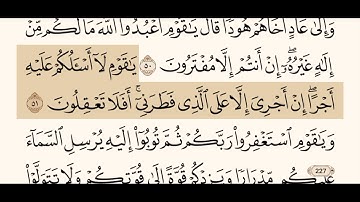 وَإِلَىٰ عَادٍ أَخَاهُمْ هُودًا ۚ قَالَ يَٰقَوْمِ ٱعْبُدُوا۟ ٱللَّهَ مَا لَكُم مِّنْ
إِلَٰهٍ غَيْرُهُۥٓ ۖ إِنْ أَنتُمْ إِلَّا مُفْتَرُونَ ٥٠ يَٰقَوْمِ لَآ أَسْـَٔلُكُمْ عَلَيْهِ
أَجْرًا ۖ إِنْ أَجْرِىَ إِلَّا عَلَى ٱلَّذِى فَطَرَنِىٓ ۚ أَفَلَا تَعْقِلُونَ ٥١
وَيَٰقَوْمِ ٱسْتَغْفِرُوا۟ رَبَّكُمْ ثُمَّ تُوبُوٓا۟ إِلَيْهِ يُرْسِلِ ٱلسَّمَآءَ
عَلَيْكُم مِّدْرَارًا وَيَزِدْكُمْ قُوَّةً إِلَىٰ قُوَّتِكُمْ وَلَا تَتَوَلَّوْا۟
227